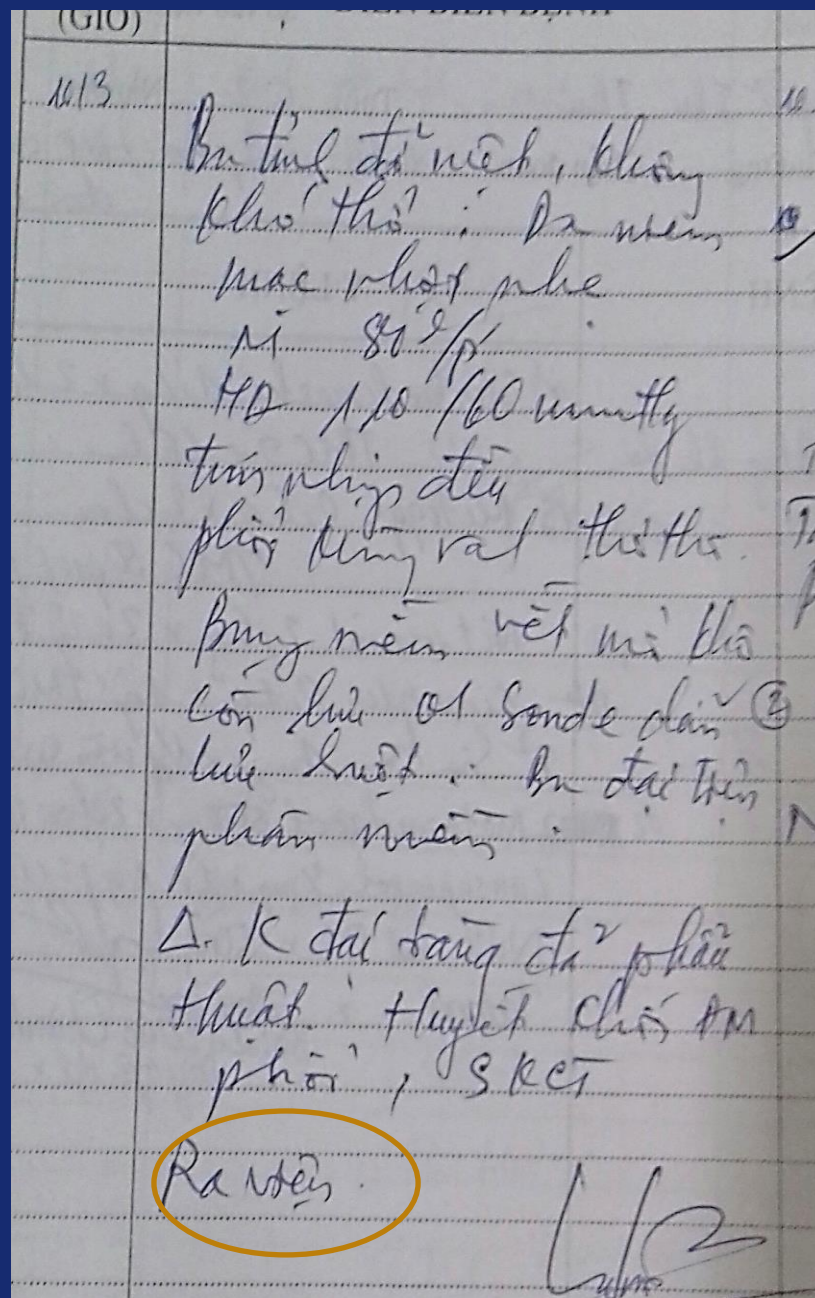 (GIỜ) DIỄN BIẾN BỆNH
10/3
Bn tỉnh đỡ mệt, không
khó thở. Da niêm
mạc nhợt nhẹ
M 80 l/p
HA 110/60 mmHg
tim nhịp đều
phổi không ral
Bụng mềm vết mổ khô
còn lưu 01 sonde dẫn
lưu . Bn đại tiện
phân mềm.
Δ. K đại tràng đã phẫu
thuật. Huyết khối ĐM
phổi,
Ra viện.